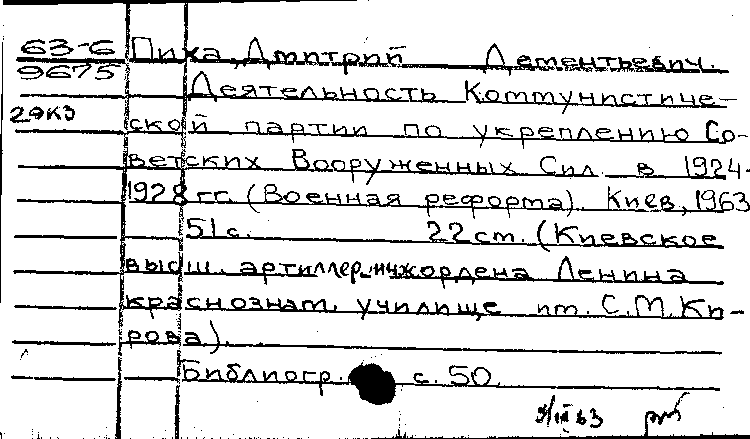 63-6 Пиха, Дмитрий Дементьевич.
9675 Деятельность Коммунистиче-
29КЗ ской партии по укреплению Со-
ветских Вооруженных Сил. в 1924-
1928 гг. (Военная реформа). Киев, 1963
51 с. 22 см. (Киевское
высш. артиллер. ордена Ленина
краснознам. училище им. С.М. Ки-
рова).
Библиогр. с. 50.